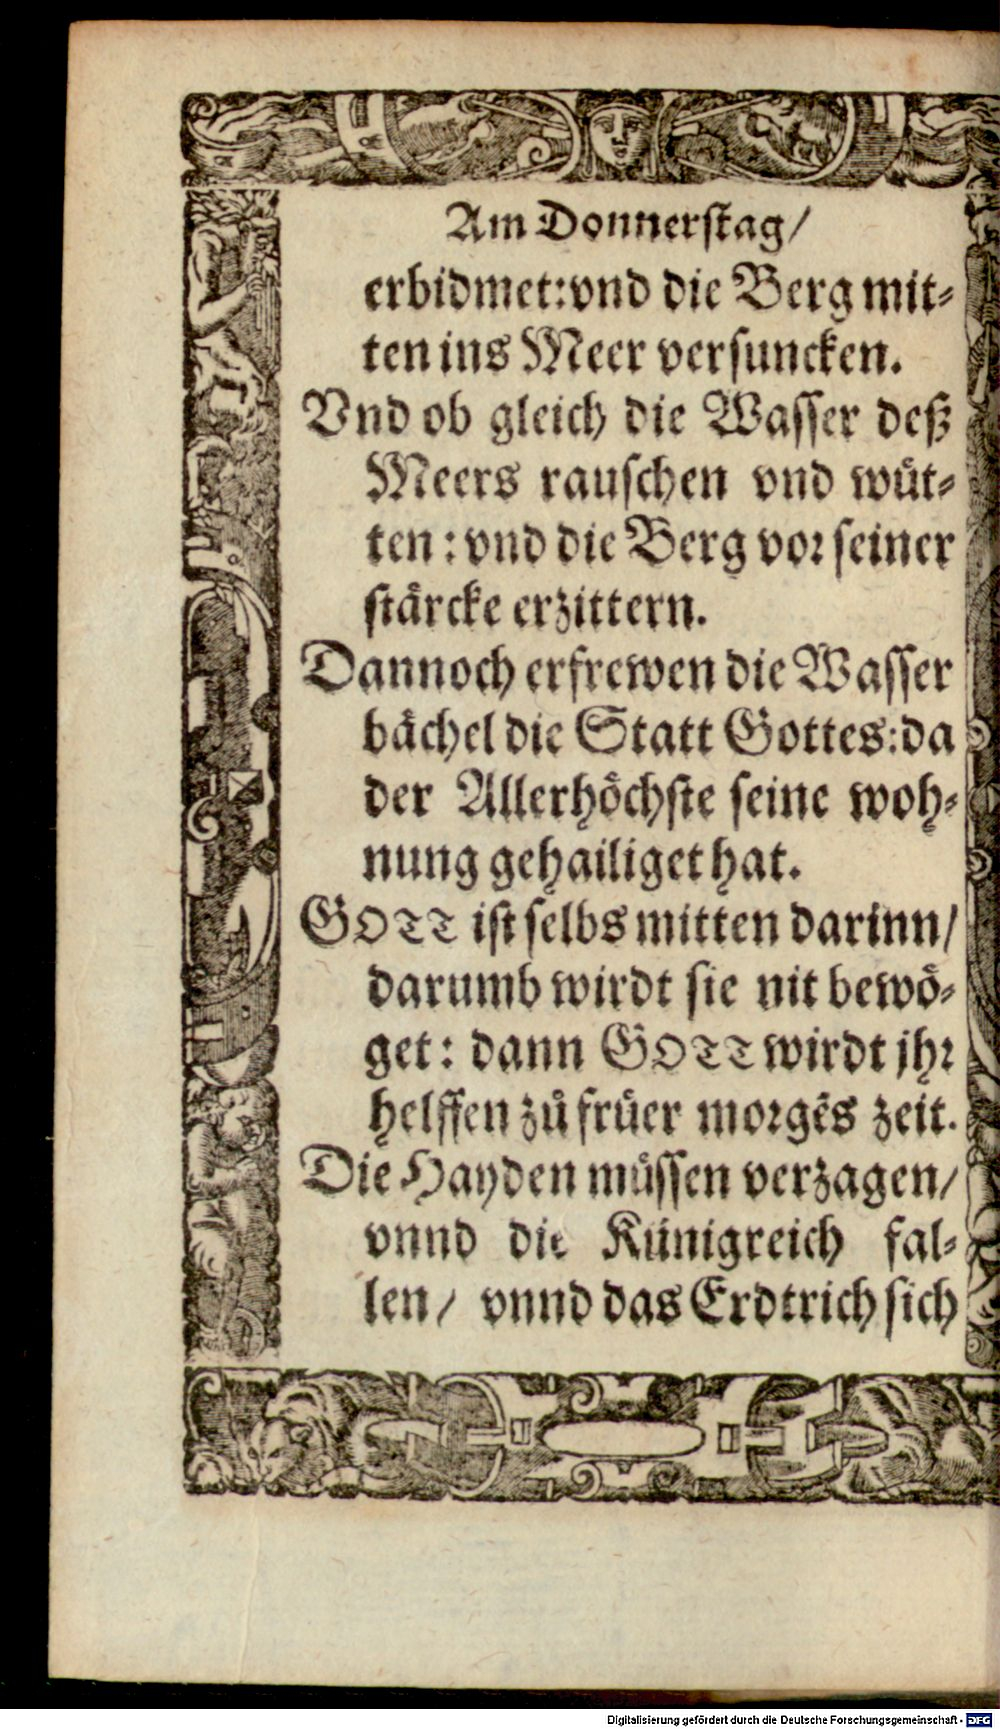 Am Donnerstag/
erbidmet: vnd die Berg mit-
ten ins Meer versuncken.
Vnd ob gleich die Wasser deß
Meers rauschen vnd wüt-
ten: vnd die Berg vor seiner
stärcke erzittern.
Dannoch erfrewen die Wasser
bächel die Statt Gottes: da
der Allerhöchste seine woh-
nung gehailiget hat.
GOTT ist selbs mitten darinn/
darumb wirdt sie nit bewö-
get: dann GOTT wirdt jhr
helffen zů früer morgēs zeit.
Die Hayden müssen verzagen/
vnnd die Künigreich fal-
len/ vnnd das Erdtrich sich
Digitalisierung gefördert durch die Deutsche Forschungsgemeinschaft - DFG